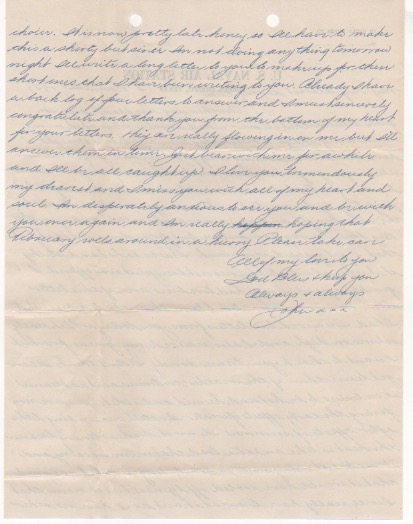 choice. It is now pretty late honey so I'll have to make
this a shorty but since I'm not doing anything tomorrow
night I'll write a long letter to you to make up for these
short ones that I have been writing to you. Already I have
a back log of four letters to answer and I must sincerely
congratulate and thank you from the bottom of my heart
for your letters. They are really flowing in on me, but I'll
answer them in time. Just bear with me for awhile
and I'll be all caught up. I love you tremendously
my dearest and I miss you with all of my heart and
soul. I'm desperately anxious to see you and be with
you once again and I'm really hoping that
February rolls around in a hurry. Please take care
All of my love to you
God Bless & keep you
Always & always
John x x x
U. S. NAVAL AIR STATION